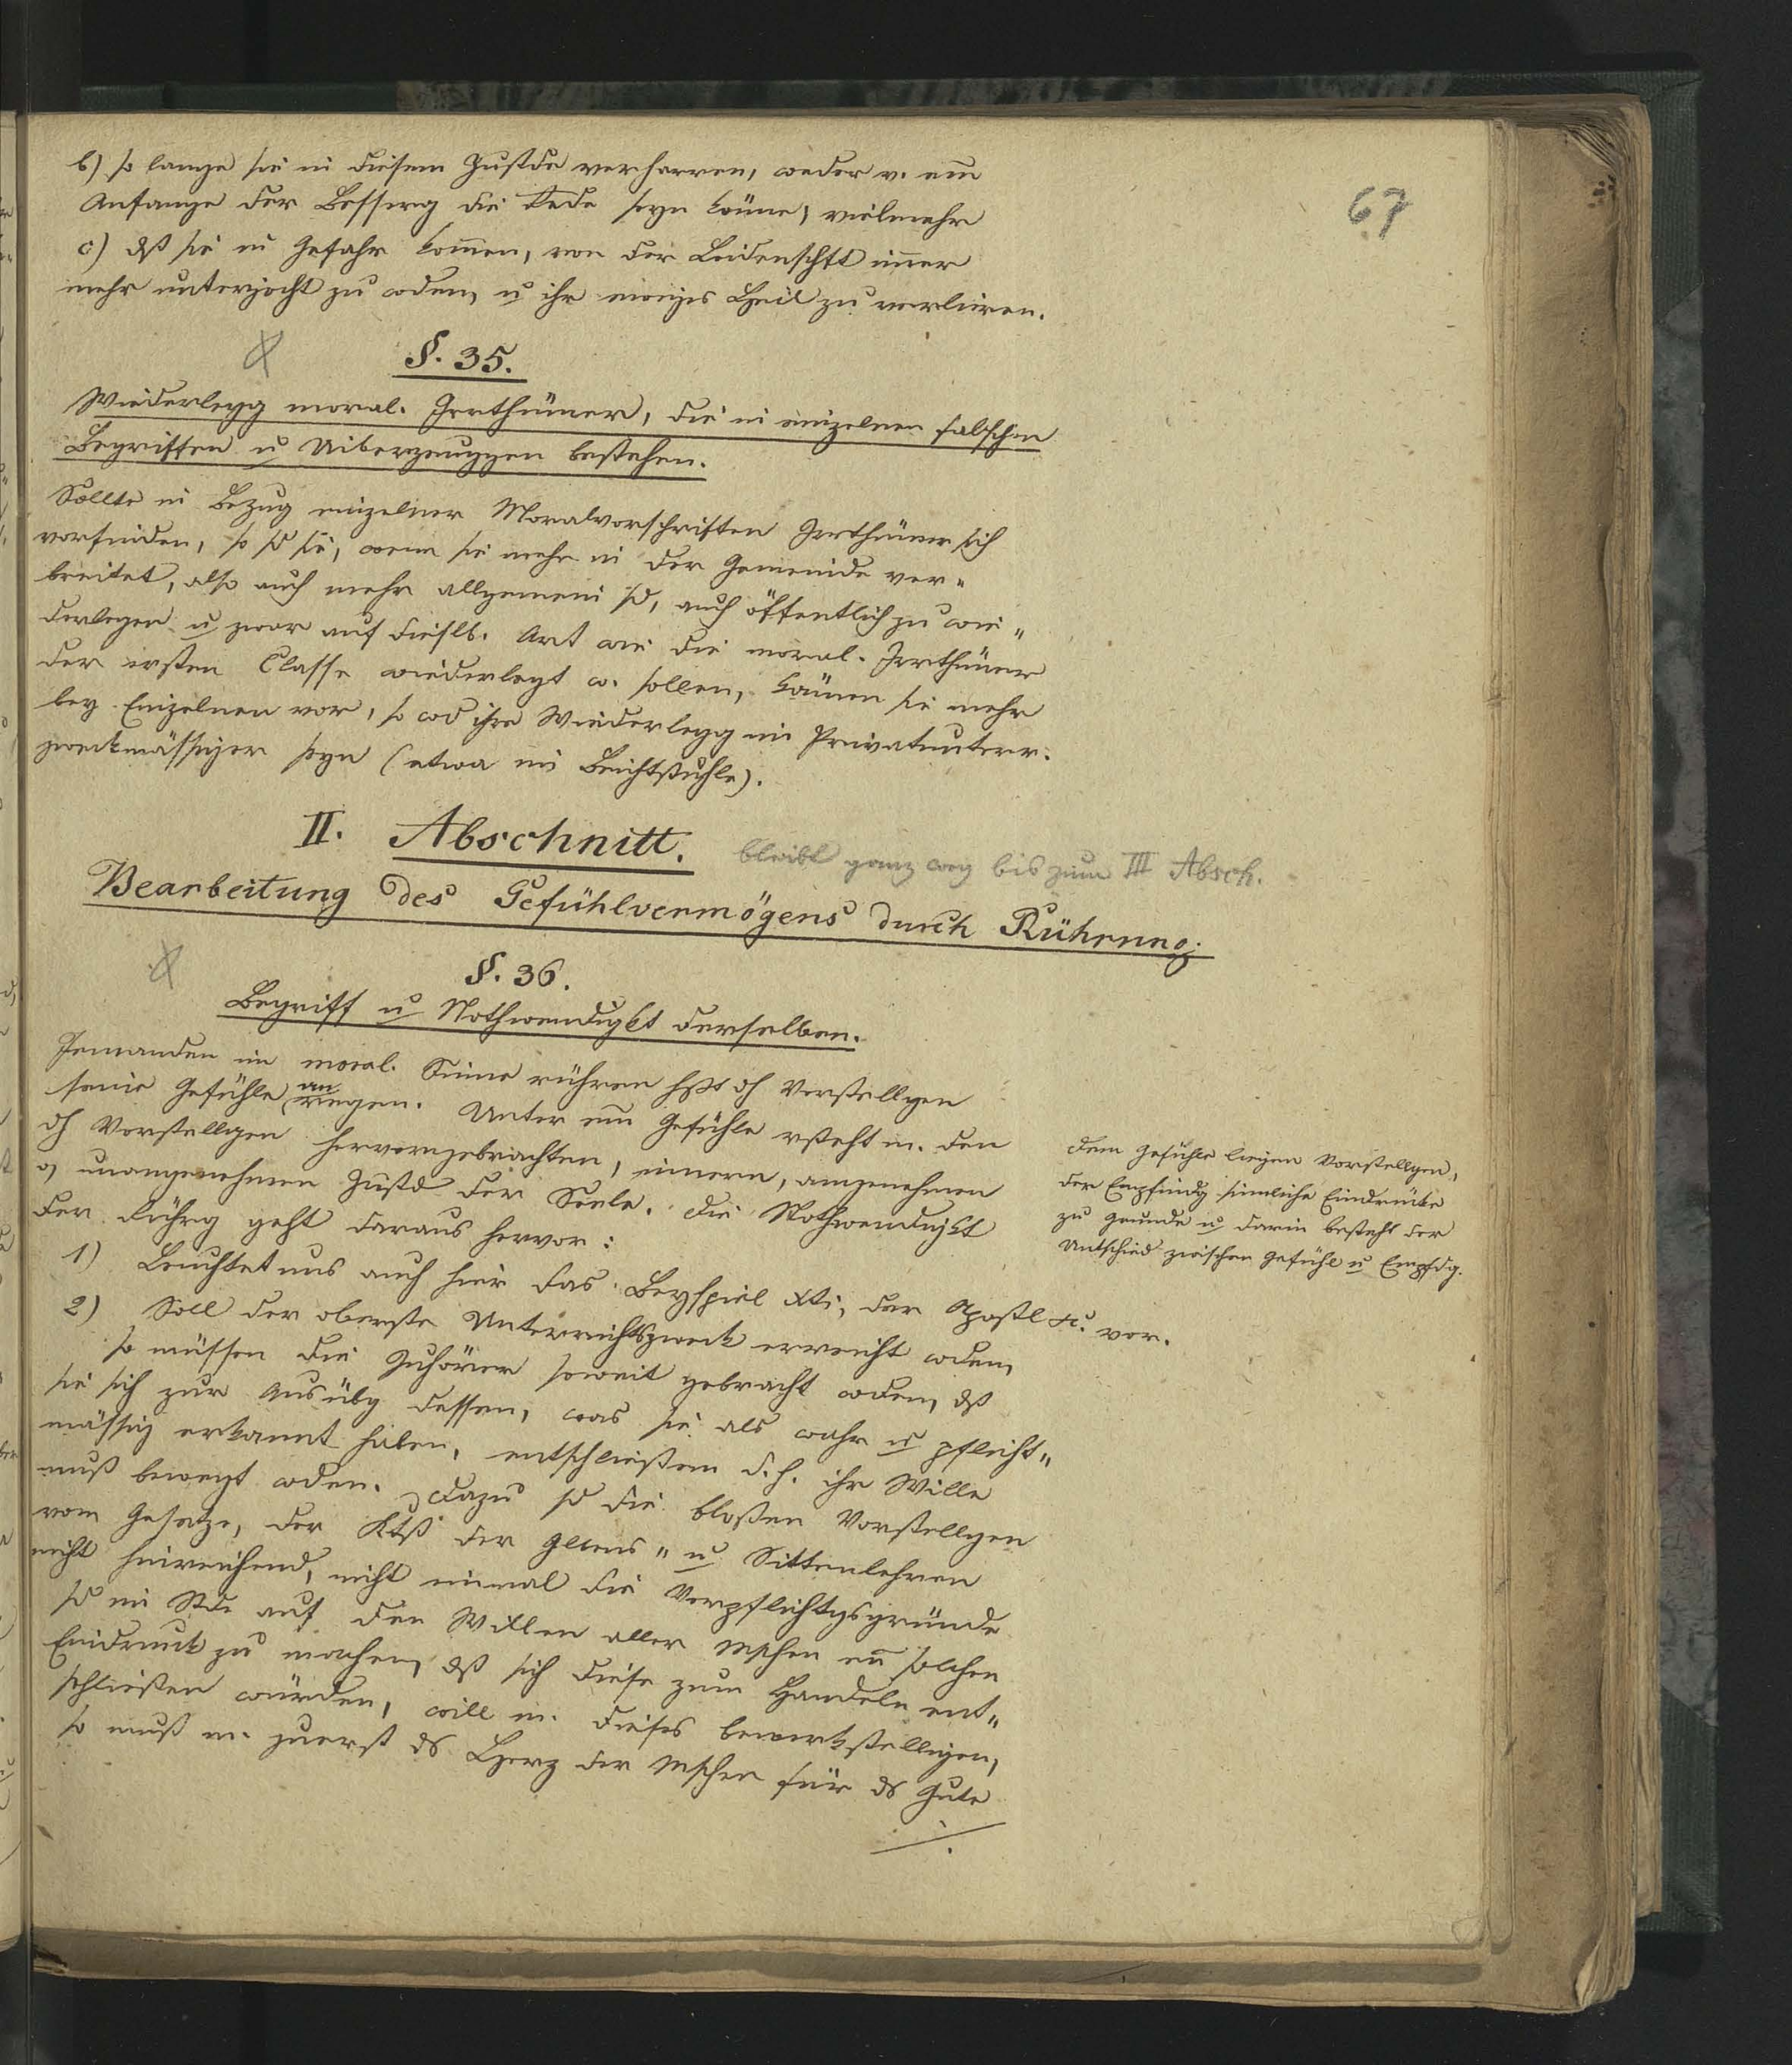 67
b) so lange sie in diesem Zustde verharren, weder v. em̅
Anfange der Besserg die Rede seyn könne; vielmehr
c) dß sie in Gefahr kom̅en, von der Leidenschft im̅er
mehr unterjocht zu wden, u ihr ewiges Heil zu verlieren.
§. 35.
Wiederlegg moral. Irrthümer, die in einzelnen falschen
Begriffen u Uiberzeuggen bestehen.
Sollte in Bezug einzelner Moralvorschriften Irrthümer sich
vorfinden, so sd sie, wenn sie mehr in der Gemeinde ver"
breitet, also auch mehr allgemein sd, auch öffentlich zu wie"
derlegen u zwar auf dieslb. Art wie die moral. Irrthümer
der ersten Classe wiederlegt w. sollen, kämen sie mehr
bey Einzelnen vor, so wd ihre Wiederlegg im Privatunterr.
zweckmässiger seyn (etwa im Beichtstuhle).
II. Abschnitt. bleibt ganz weg bis zum III Absch.
Bearbeitung des Gefühlvermögens durch Rührung.
§. 36.
Begriff u Nothwendigkt derselben.
Jemanden im moral. Sinne rühren hßt dh Vorstellgen
seine Gefühle anregen. Unter em̅ Gefühle rsteht m. den
dh Vorstellgen hervorgebrachten, innern, angenehmen
o unangenehmen Zustd der Seele. Die Nothwendigkt
der Rührg geht daraus hervor:
Dem Gefühle liegen Vorstellgen,
der Empfindg sinnliche Eindrücke
zu Grunde u darin besteht der
Untschied zwischen Gefühl u Empfdg.
1) Leuchtet uns auch hier das Beyspiel Xti, der Apostl &c. vor.
2) Soll der oberste Unterrichtszweck erreicht wden,
so müssen die Zuhörer soweit gebracht wden, dß
sie sich zur Ausübg dessen, was sie als wahr u pflicht"
mässig erkannt haben, entschließen d. h. ihr Wille
muß bewegt wden. Dazu sd die bloßen Vorstellgen
vom Gesetze, der Ktß der Glbens" u Sittenlehren
nicht hinreichend, nicht einmal die Verpflichtgsgründe
sd im Stde auf den Willen aller Mschen en̅ solchen
Eindruck zu machen, dß sich diese zum Handeln ent"
schließen würden, will m. dieses bewerkstelligen,
so muß m. zuerst ds Herz der Mschen für ds Gute
./.